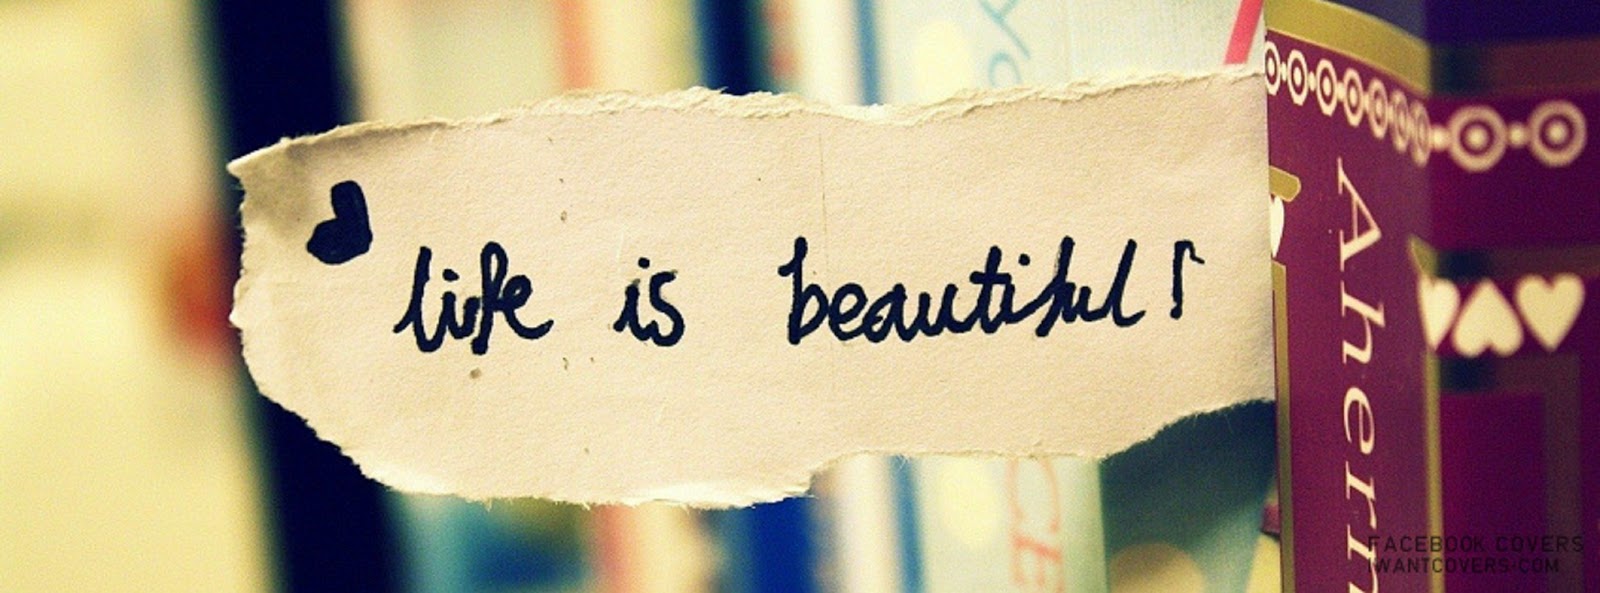 life is beautiful!
Ahern
CE
FACEBOOK COVERS
IWANTCOVERS.COM